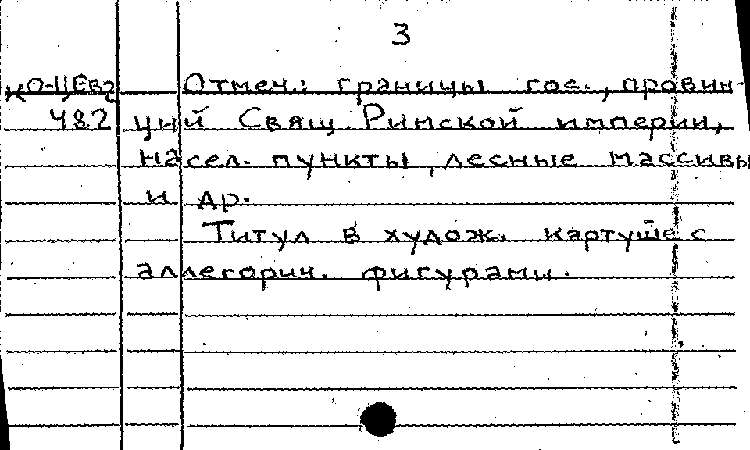 3
Ко-ЦЕв2 Отмеч.: границы гос., провин-
482 ций Свящ. Римской империи,
насел. пункты, лесные массивы
и др.
Титул в худож. картуше с
аллегорич. фигурами.